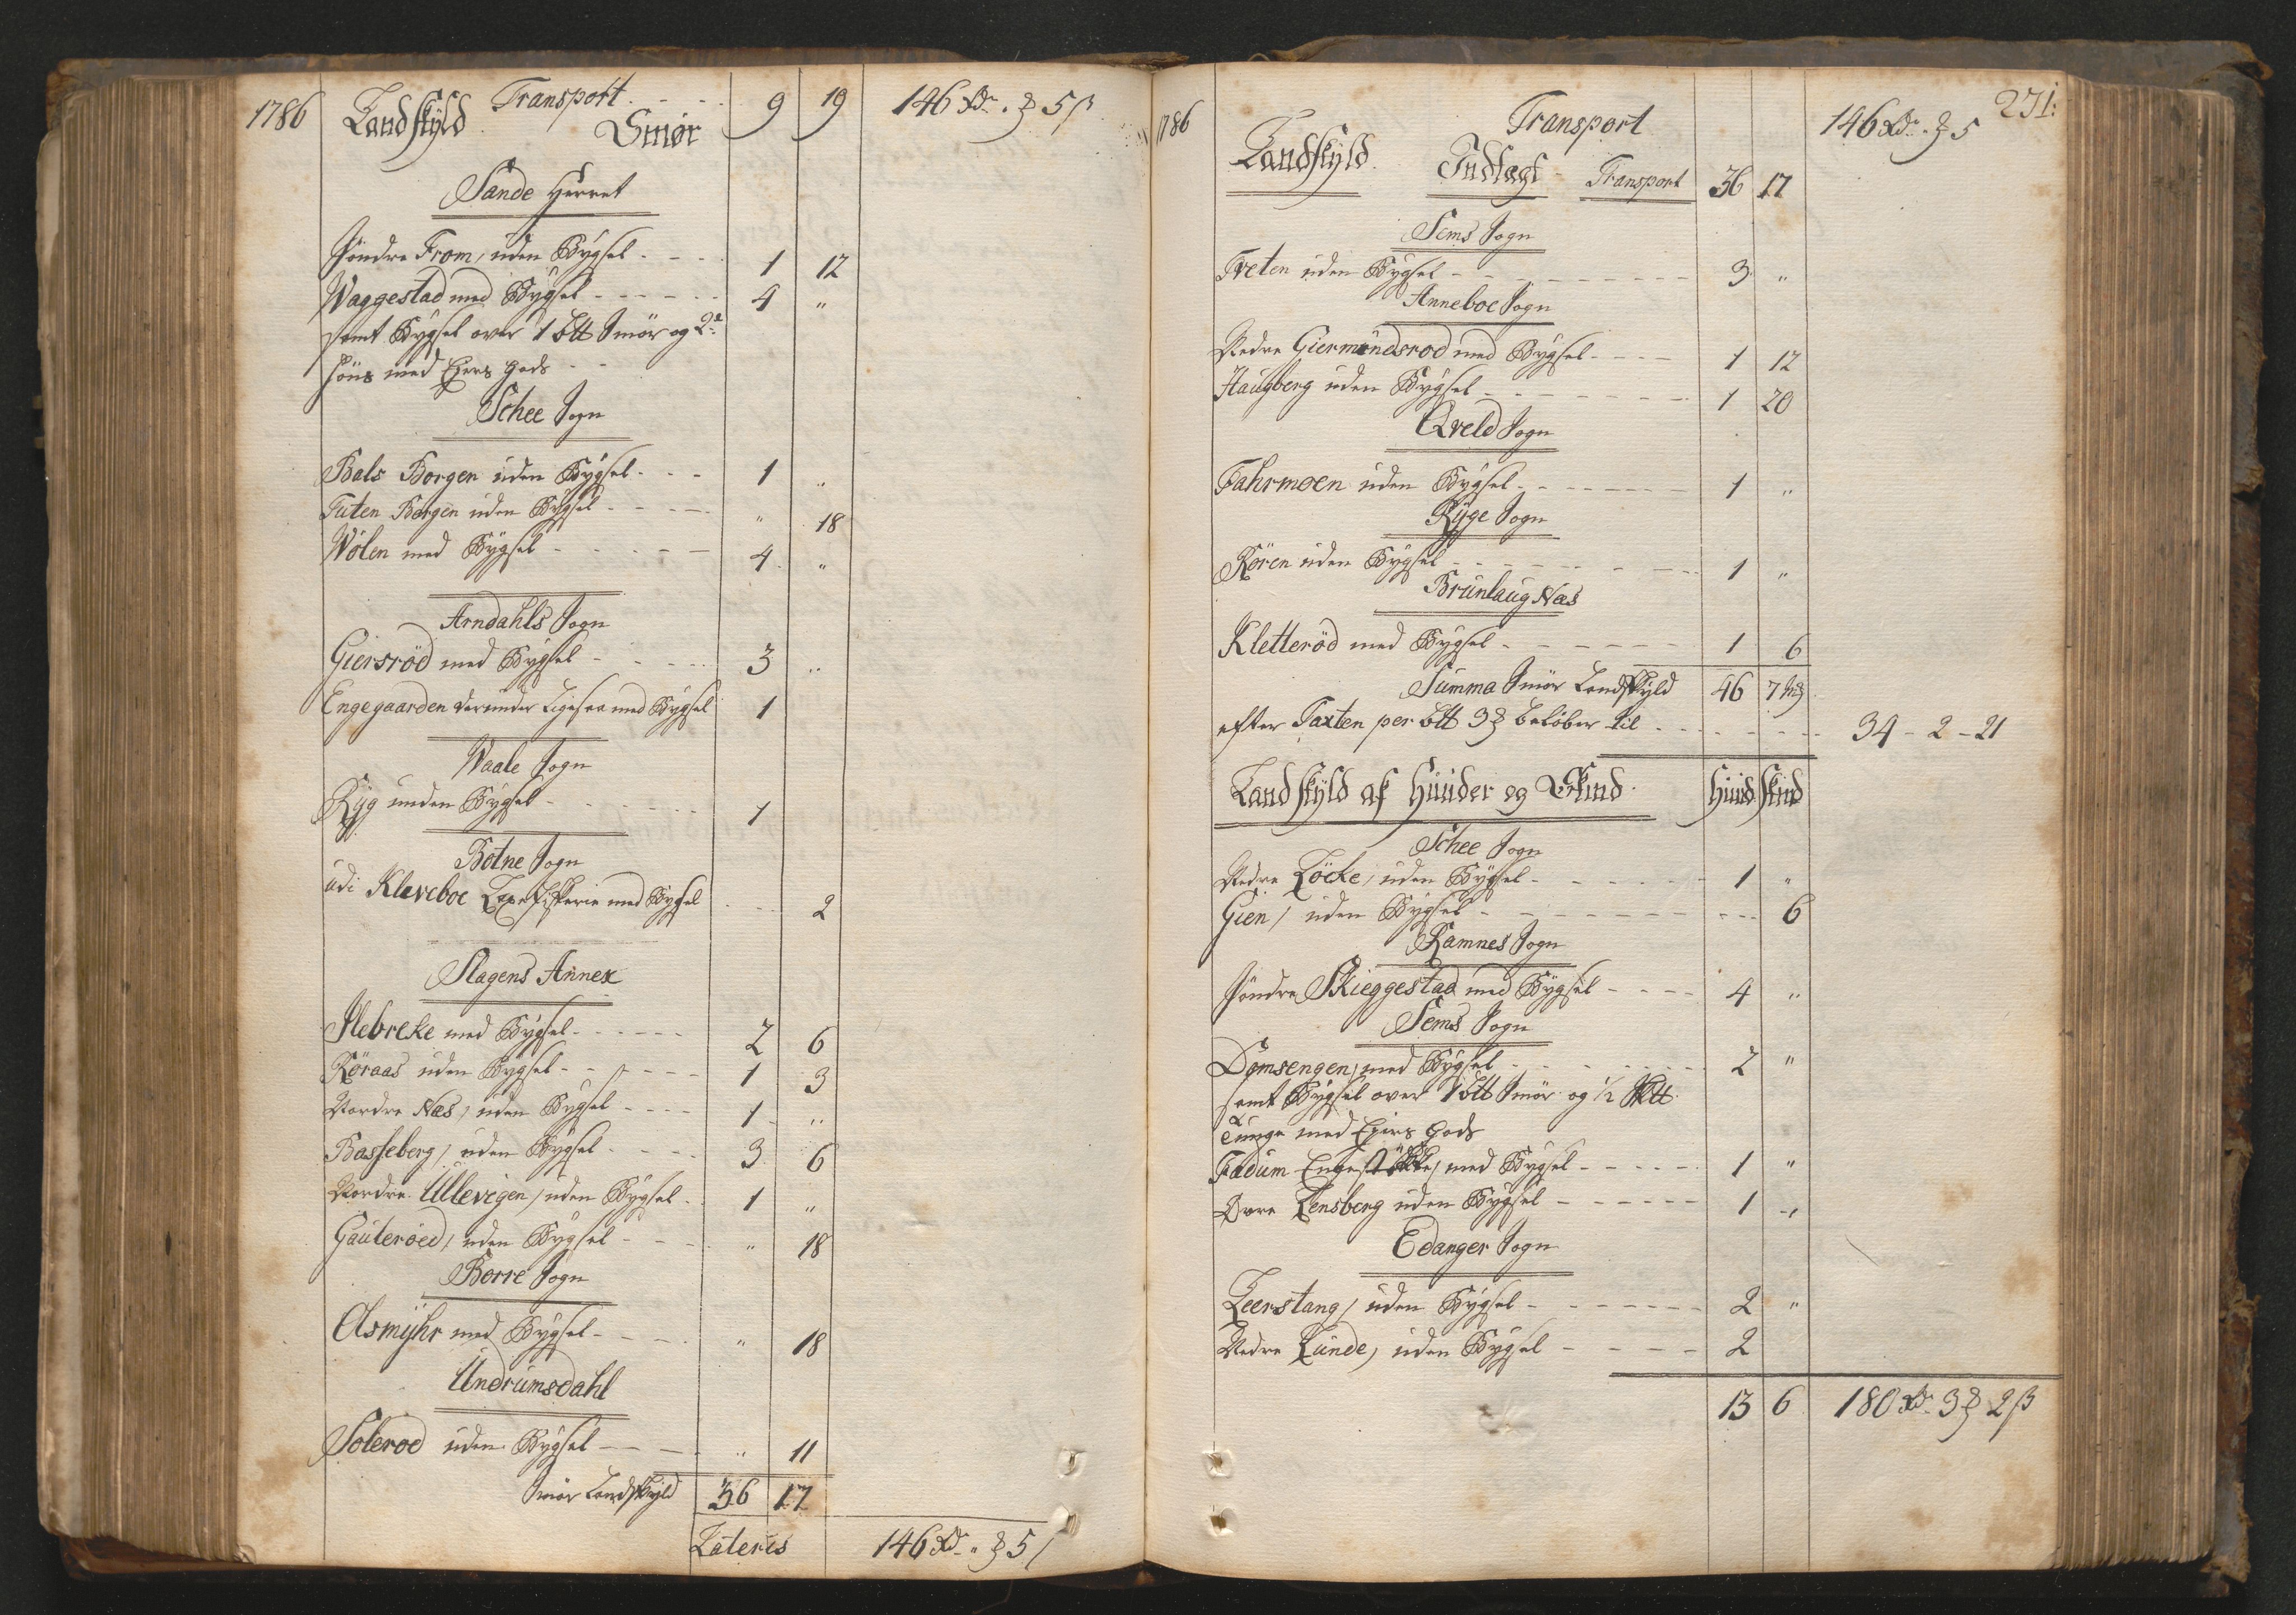 1786 Landskyld Transport 9 19 146 Rdr. " 5 β
Smør
Sande Herret
Søndre From, uden Bygsel - - - 1 12
Waggestad med Bygsel - - - 4 "
samt Bygsel over 1 btt Smør og 2de
Høns med Ejers Gods - -
Schee Sogn
Bals Borgen uden Bygsel - - - 1 "
Tuten Borgen uden Bygsel - - - " 18
Wølen med Bygsel - - - 4 "
Arndahls Sogn
Giersröd med Bygsel - - - 3 "
Engegaarden derunder Ligesaa med Bygsel 1
Waale Sogn
Ryg uden Bygsel - - - 1
Botne Sogn
udi Kleveboe Laxefiskerie med Bygsel - - 2
Slagens Annex
Ilebreke med Bygsel - - - 2 6
Röraas uden Bygsel - - - 1 3
Nordre Næs, uden Bygsel - - - 1 "
Basseberg, uden Bygsel - - - 3 6
Nordre Ullevigen, uden Bygsel - 1 "
Gauteröed, uden Bygsel - - - " 18
Borre Sogn
Asmyhr med Bygsel - - - " 18
Undrumsdahl
Solerod uden Bygsel - - - " 11
Smør Landskyld 36 17
Lateris 146 Rdr. " 5
1786 Transport 146 Rdr. 5 271.
Landskyld Indlagt Transport 36 17
Sems Sogn
Treten uden Bygsel - - - 3 "
Anneboe Sogn
Nedre Giermundsrod med Bygsel - - - 1 12
Haugberg uden Bygsel - - - 1 20
Qveld Sogn
Fahrmoen uden Bygsel - - - 1 "
Ryge Sogn
Rören uden Bygsel - - - 1 "
Brunlaug Næs
Kletteröd med Bygsel - - - 1 6
Summa Smør Landskyld 46 7 mg
efter Taxten per btt 3 beløber til - - - 34 - 2 - 21
Landskyld af Huuder og Skind Huud Skind
Schee Sogn
Nedre Löcke, uden Bygsel - - - 1 "
Gien, uden Bygsel - - - 6
Ramnes Sogn
Søndre Skieggestad med Bygsel - - - 4 "
Sems Sogn
Domsengen, med Bygsel - - - 2 "
samt Bygsel over 1 btt Smør og 1/2 Sktt
Tunge med Ejers Gods
Fadum Engestökke, med Bygsel - - - 1 "
Øvre Lensberg uden Bygsel - - - 1 "
Edanger Sogn
Leerstang, uden Bygsel - - - 2 "
Nedre Lunde, uden Bygsel - - - 2
13 6 180 Rdr. 3 2 β